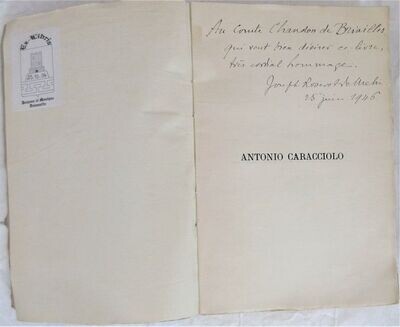 Ex-Libris
Au Comte Chandon de Briailles
qui veut bien désirer ce livre,
très cordial hommage.
Joseph Roserot de Melin
25 juin 1946
ANTONIO CARACCIOLO